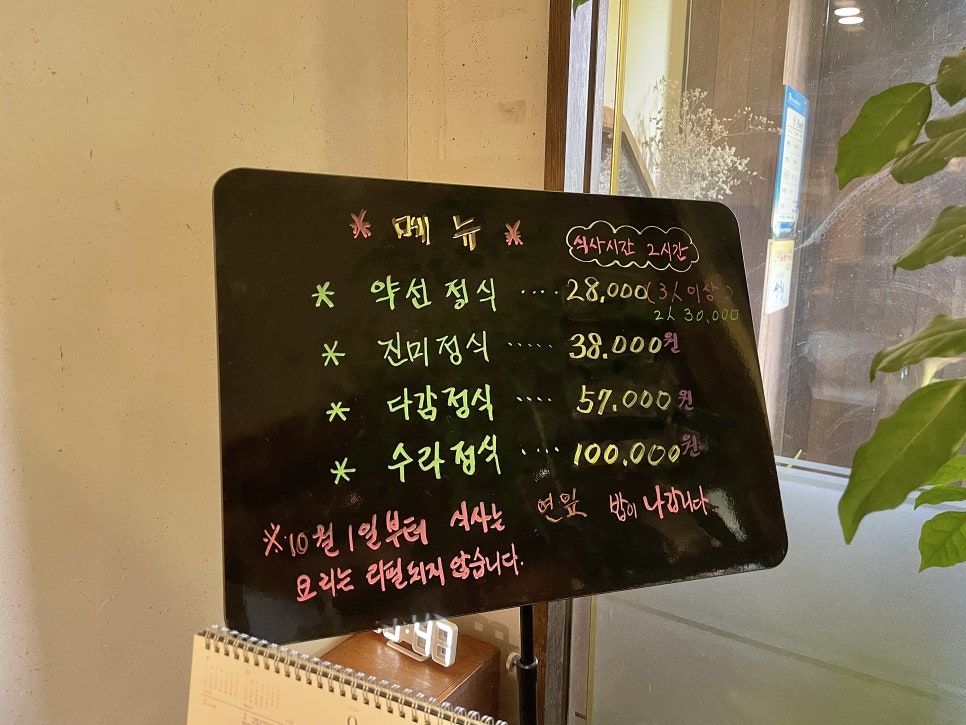 * 메뉴 *
식사시간 2시간
* 약선정식 ···· 28,000(3人 이상)
2人 30,000
* 진미정식 ····· 38.000원
* 다감정식 ···· 57.000원
* 수라정식 ···· 100.000원
※10월 1일부터 식사는 연잎 밥이 나갑니다
요리는 리필되지 않습니다.
:43